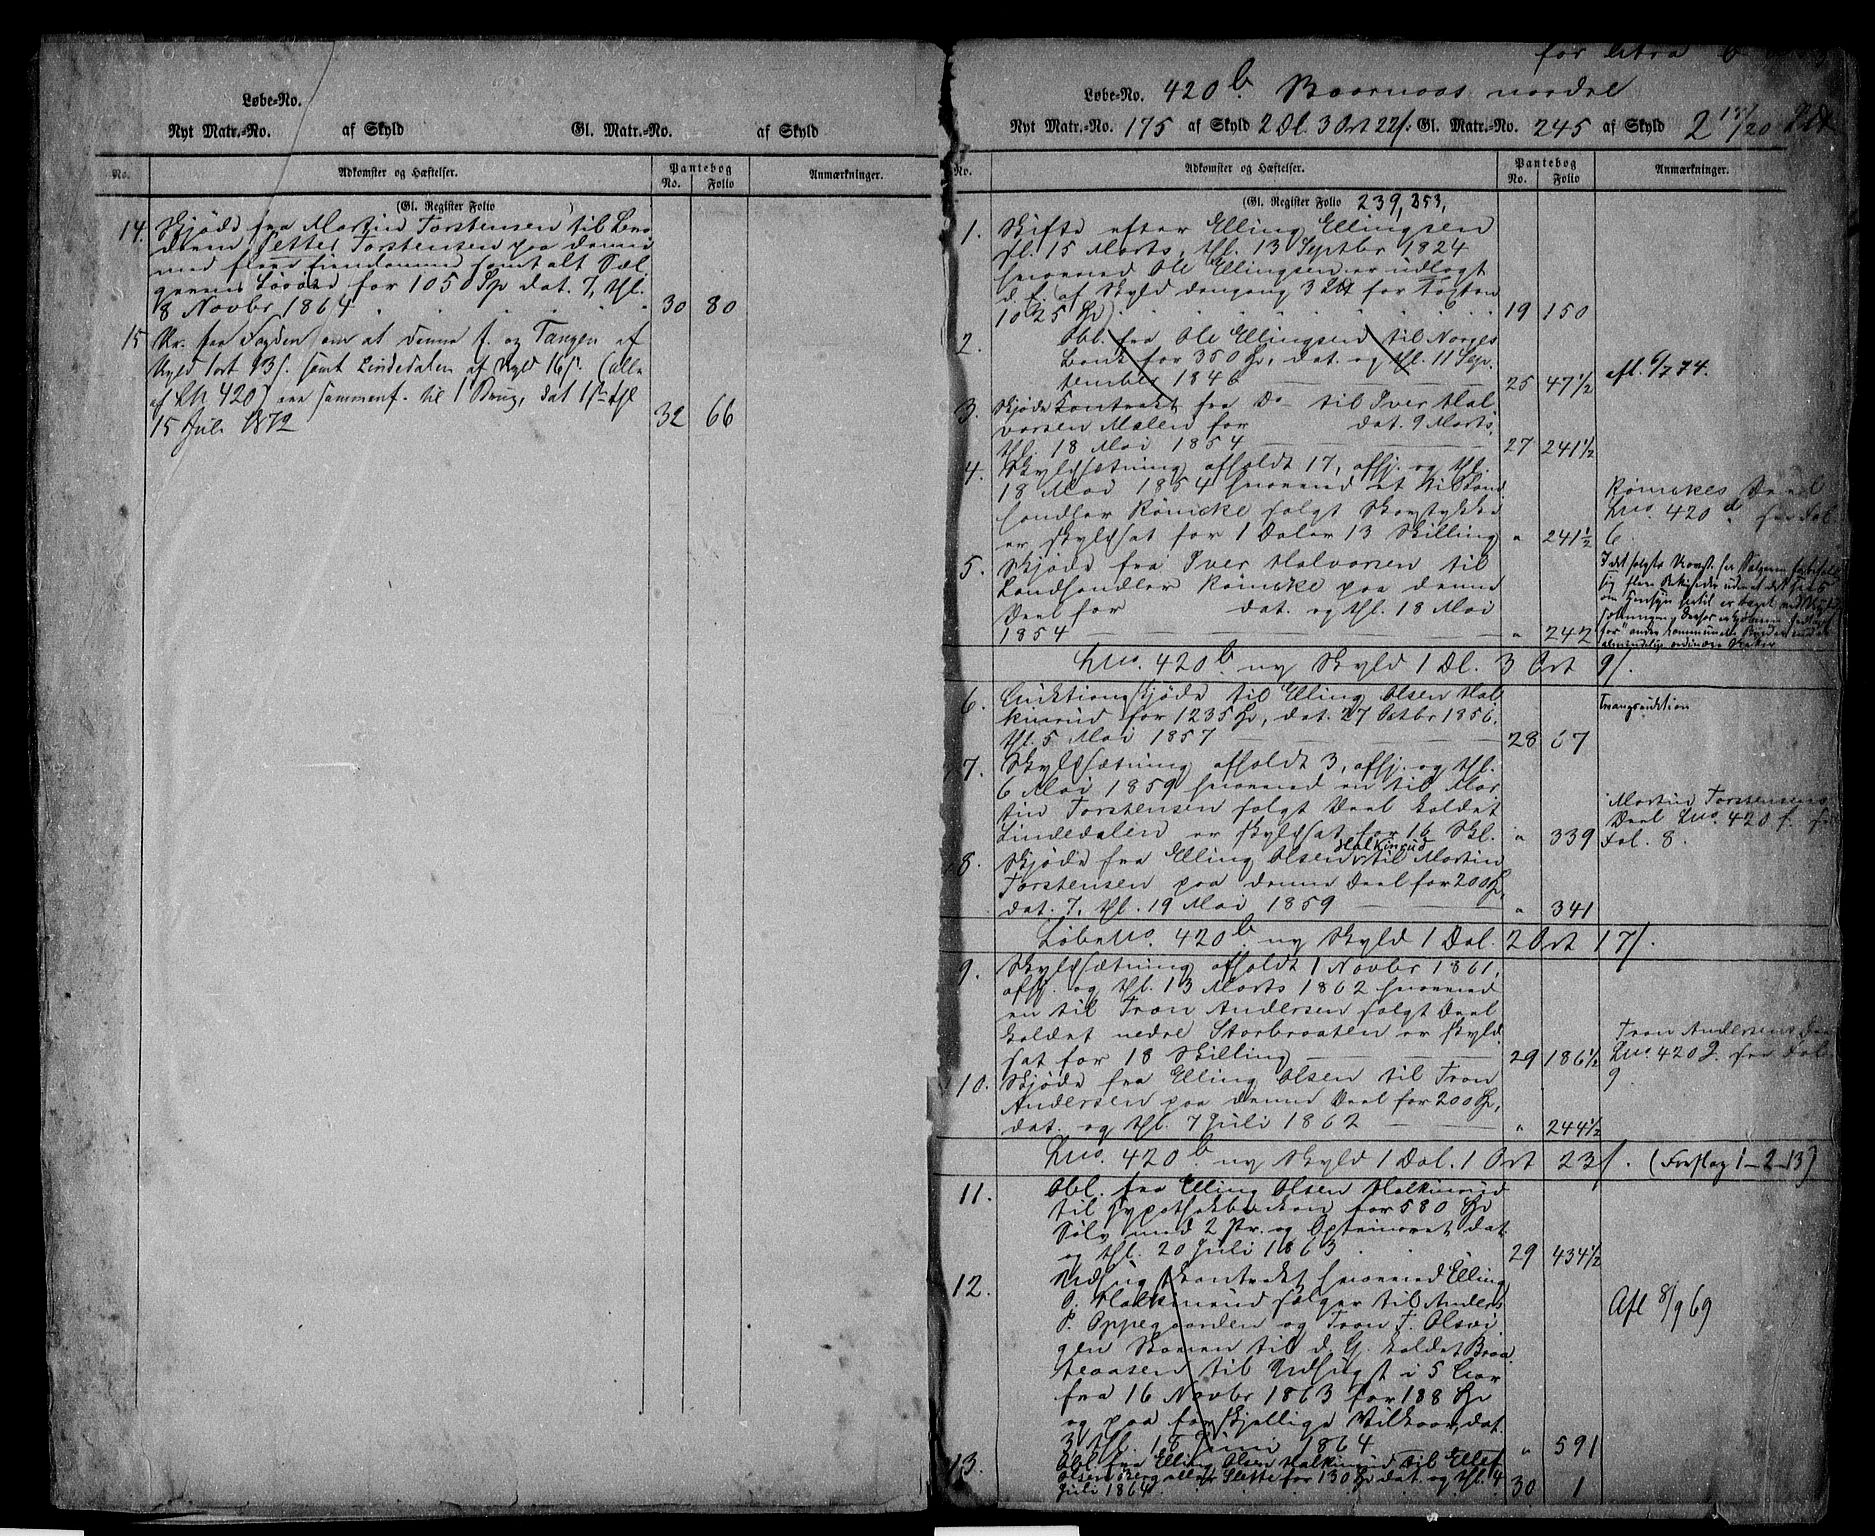 Løbe-No.
Nyt Matr.-No. af Skyld Gl. Matr.-No. af Skyld
No. Adkomster og Hæftelser. Pantebog No. Folio Anmærkninger.
(Gl. Register Folio )
14. Skjøde fra Martin Torstensen til Bro
deren Petter Torstensen paa denne
med flere Eiendomme samt alt Sæl
gerens Løsøre for 1050 Sp dat. 7, thl.
8 Novbr 1864 30 80
15 Br. fra Fogden om at denne f. og Tangen af
Skyld 1 ort 23 s. samt Lindedalen af Skyld 16 s. (alle
af LN 420) ere sammenf. til 1 Brug, dat 1ste thl
15 Juli 1872 32 66
for Litra b
Løbe-No. 420 b. Baarnaas nordre
Nyt Matr.-No. 175 af Skyld 2 Dl. 3 Ort 22 s: Gl. Matr.-No. 245 af Skyld 2 15/20
No. Adkomster og Hæftelser. Pantebog No. Folio Anmærkninger.
(Gl. Register Folio 239, 353,
1. Skifte efter Elling Ellingsen
sl. 15 Marts, thl. 13 Septbr 1824
hvorved Ole Ellingsen er udlagt
d. f. af Skyld dengang 3 for Taxten
1025 Sp) 19 150
2. Obl. fra Ole Ellingsen til Norges
Bank for 350 Sp, dat. og thl. 11 Sep-
tember 1846 25 47 1/2 Afl. 6/7 74.
3. Skjøde Kontrakt fra Do til Iver Hal
vorsen Malen for dat. 9 Marts,
thl. 18 Mai 1854 27 241 1/2
4. Skyldsætning afholdt 17, afhj. og thl.
18 Mai 1854 hvorved et til Land
handler Rømcke solgt Skovstykke
er skyldsat for 1 Daler 13 Skilling " 241 1/2
Rømckes Deel
Lno. 420 d. see Fol
6.
5. Skjøde fra Iver Halvorsen til
Landhandler Rømcke paa denne
Deel for dat. og thl. 18 Mai
1854 " 242
Lno. 420 b. ny Skyld 1 Dl. 3 Ort 9 s.
6. Auktionsskjøde til Elling Olsen Hal
kinrud for 1235 Sp, dat. 27 Octbr 1856,
thl. 5 Mai 1857 28 67 Tvangsauktion
7. Skyldsætning afholdt 3, afhj. og thl.
6 Mai 1859 hvorved en til Mar
tin Torstensen solgt Deel kaldet
Lindedalen er skyldsat for 16 Skl. " 339
Martin Torstensens
Deel Lno. 420 f. see
Fol. 8.
8. Skjøde fra Elling Olsen Halkinrud til Martin
Torstensen paa denne Deel for 200 Sp,
dat. 7, thl. 19 Mai 1859 " 341
Løbeno. 420 b. ny Skyld 1 Dal. 2 Ort 17 s.
9. Skyldsætning afholdt 1 Novbr 1861,
afhj. og thl. 13 Marts 1862 hvorved
en til Tron Andersen solgt Deel
kaldet nedre Storbraaten er skyld
sat for 18 Skilling 29 186 1/2
Tron Andersens Deel
Lno. 420 g. see Fol.
9.
10. Skjøde fra Elling Olsen til Tron
Andersen paa denne Deel for 200 Sp,
dat. og thl. 7 Juli 1862 " 244 1/2
Lno. 420 b. ny Skyld 1 Dal. 1 Ort 23 s. (Forslag 1-2-13)
11. Obl. fra Elling Olsen Halkinrud
til Hypothekbanken for 580 Sp
Sølv med 2 Pr. og Opteinoret dat
og thl. 20 Juli 1863 29 434 1/2
12. Udhugstkontrakt hvorved Elling
O. Halkinrud sælger til Anders
P. Oppegaarden og Tron T. Olsvi
gen Skoven til d. G. kaldet Braa
teaasen til Udhugst i 5 Aar
fra 16 Novbr 1863 for 188 Sp
og paa forskjellige Vilkaar, dat.
3, thl. 15 Juni 1864 " 591
Afl 8/9 69
13. Obl. fra Elling Olsen Halkinrud til Ellef
Olsen Berg eller Slette for 130 Sp dat. og thl. 4
Juli 1864 30 1